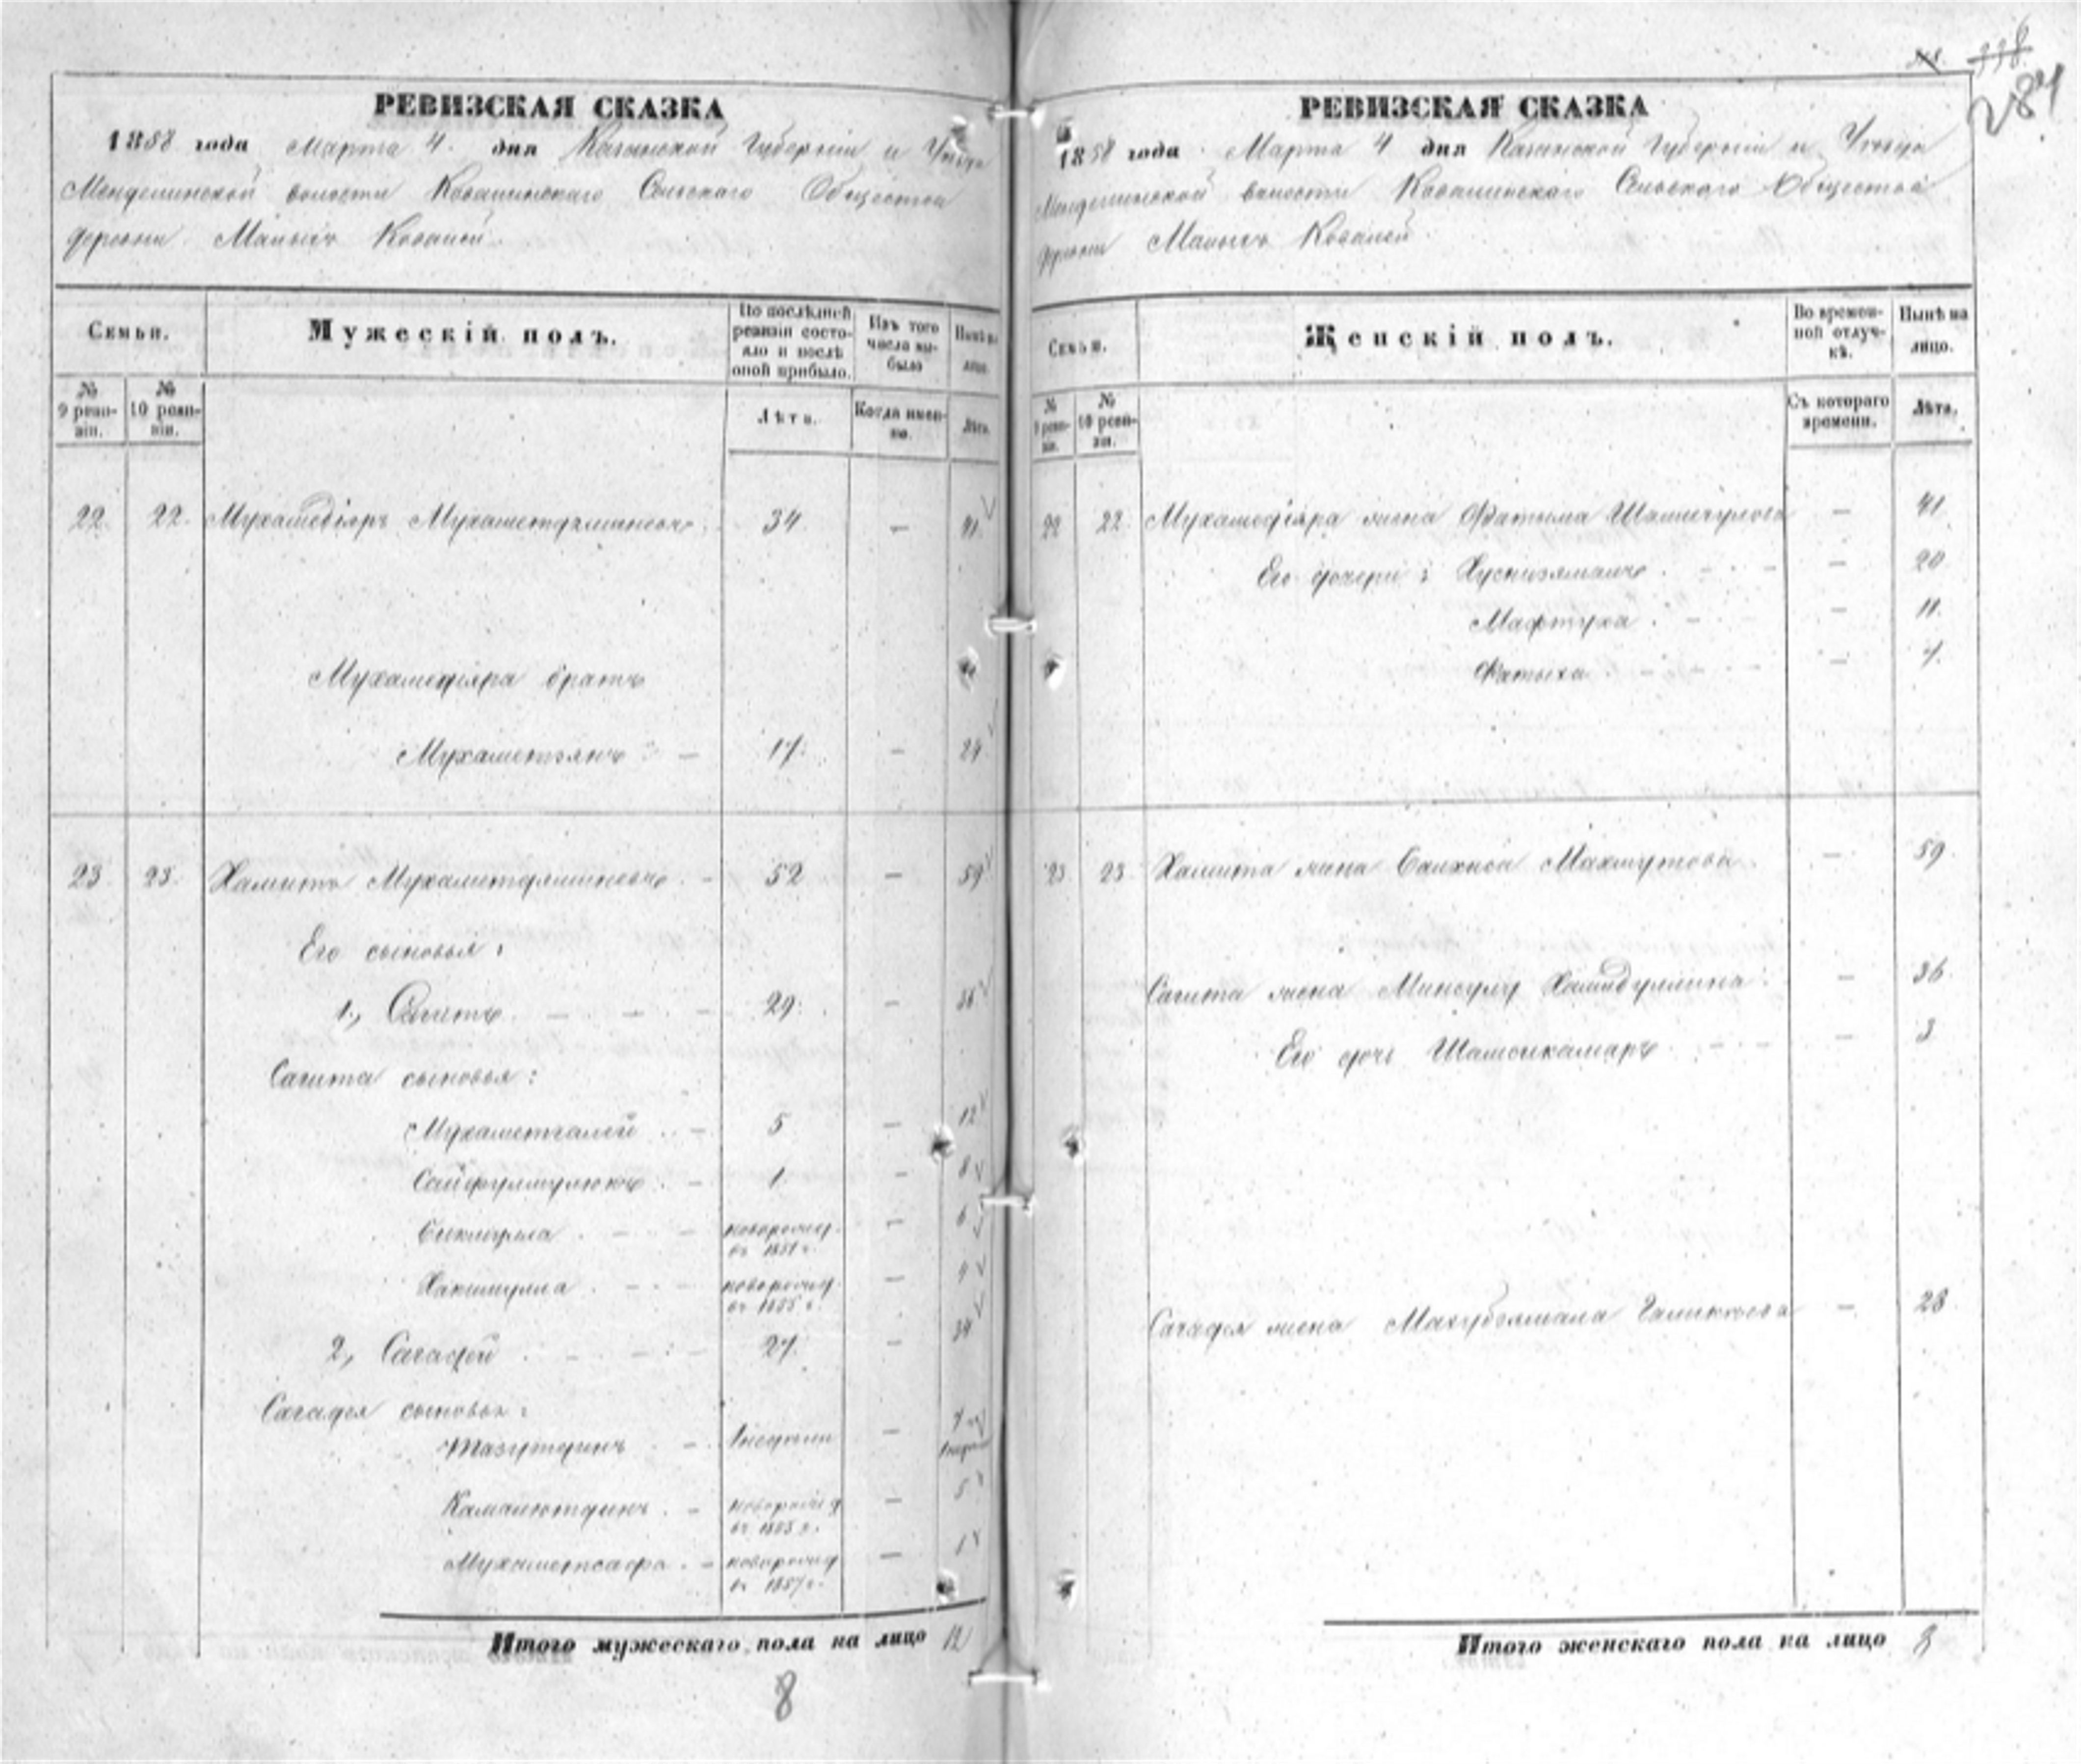 РЕВИЗСКАЯ СКАЗКА
1858 года Марта 4. дня Казанской Губернiи и Уезда
Менделинской волости Ковалинскаго Сельскаго Общества
деревни Малыхъ Ковалей.
Семьи.
Мужескій полъ.
По послѣдней ревизіи состояло и послѣ оной прибыло.
Изъ того числа выбыло
Нынѣ на лицо.
№ 9 ревизіи.
№ 10 ревизіи.
Лѣта.
Когда именно.
Лѣта.
22. 22. Мухамедіяръ Мухаметдляминовъ 34 — 41
Мухамедіяра братъ
Мухаметзянъ — 17. — 24
23 23. Хамитъ — 52 — 59
Его сыновья:
1., Сагитъ — 29. — 36
Сагита сыновья:
Мухаметгалей — 5 — 12
Сайфулмулюкъ — 1 — 8
новорожд. въ 1851 г. — 6
Хакимулла новорожд. въ 1855 г. — 4
2, Сагадей — 27. — 34
Сагадея сыновья:
— 7
Камалютдинъ — новорожд. — 5
Мухаметсафа — новорожд. въ 1857 г. — 1
Итого мужескаго пола на лицо 12
8
338
284
РЕВИЗСКАЯ СКАЗКА
1858 года Марта 4 дня Казанской Губерніи и Уезда
Менделинской волости Ковалинскаго Сельскаго Общества
деревни Малыхъ Ковалей.
Семьи.
Женскій полъ.
Во временной отлучкѣ.
Нынѣ на лицо.
№ 9 ревизіи.
№ 10 ревизіи.
Съ котораго времени.
Лѣта.
22 22. Мухамедіяра жена Фатыма — 41
Его дочери: Хуснизяманъ — 20
Мафтуха — 11.
Фатыха — 7.
23. 23. Хамита жена Махмутова — 59.
Сагита жена Минсулу Хамидуллина — 36
Его дочь Шамсикамаръ — 3
Сагадея жена — 28
Итого женскаго пола на лицо 8